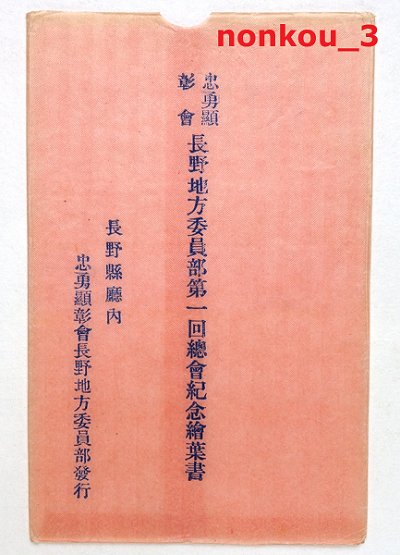 nonkou_3
忠勇顯彰會長野地方委員部第一回總會紀念繪葉書
長野縣廳內
忠勇顯彰會長野地方委員部發行